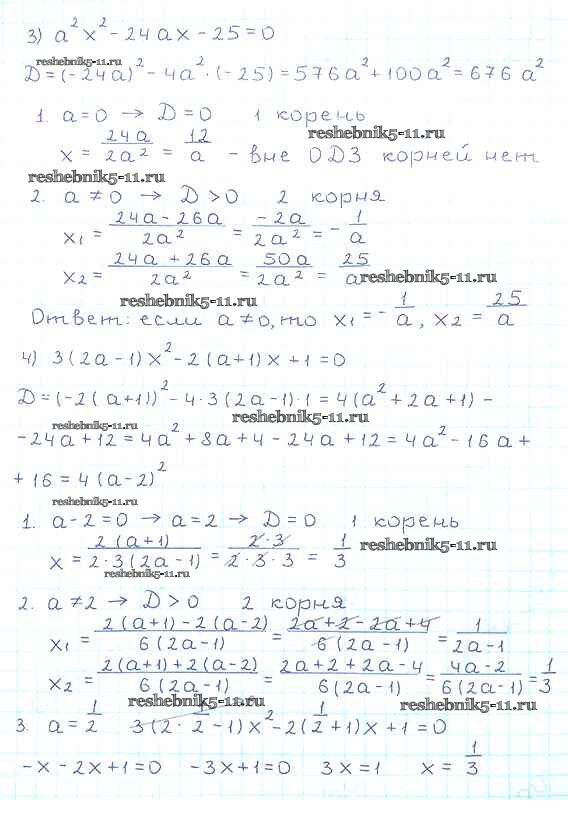 3) a²x² - 24ax - 25 = 0
reshebnik5-11.ru
D = (-24a)² - 4a² · (-25) = 576a² + 100a² = 676 a²
1. a = 0 → D = 0 1 корень
reshebnik5-11.ru
x = 24a/2a² = 12/a - вне ОДЗ корней нет
reshebnik5-11.ru
2. a ≠ 0 → D > 0 2 корня
x₁ = (24a - 26a)/2a² = -2a/2a² = -1/a
x₂ = (24a + 26a)/2a² = 50a/2a² = 25/a
reshebnik5-11.ru
reshebnik5-11.ru
Ответ: если a ≠ 0, то x₁ = -1/a, x₂ = 25/a
4) 3(2a - 1)x² - 2(a + 1)x + 1 = 0
D = (-2(a+1))² - 4·3(2a-1)·1 = 4(a² + 2a + 1) -
reshebnik5-11.ru
reshebnik5-11.ru
- 24a + 12 = 4a² + 8a + 4 - 24a + 12 = 4a² - 16a +
+ 16 = 4(a-2)²
reshebnik5-11.ru
1. a - 2 = 0 → a = 2 → D = 0 1 корень
x = 2(a+1)/(2·3(2a-1)) = 2·3/(2·3·3) = 1/3
reshebnik5-11.ru
reshebnik5-11.ru
2. a ≠ 2 → D > 0 2 корня
x₁ = (2(a+1) - 2(a-2))/(6(2a-1)) = (2a+2-2a+4)/(6(2a-1)) = 1/(2a-1)
x₂ = (2(a+1) + 2(a-2))/(6(2a-1)) = (2a+2+2a-4)/(6(2a-1)) = (4a-2)/(6(2a-1)) = 1/3
reshebnik5-11.ru
reshebnik5-11.ru
3. a = 1/2 3(2·1/2 - 1)x² - 2(1/2 + 1)x + 1 = 0
-x - 2x + 1 = 0 -3x + 1 = 0 3x = 1 x = 1/3